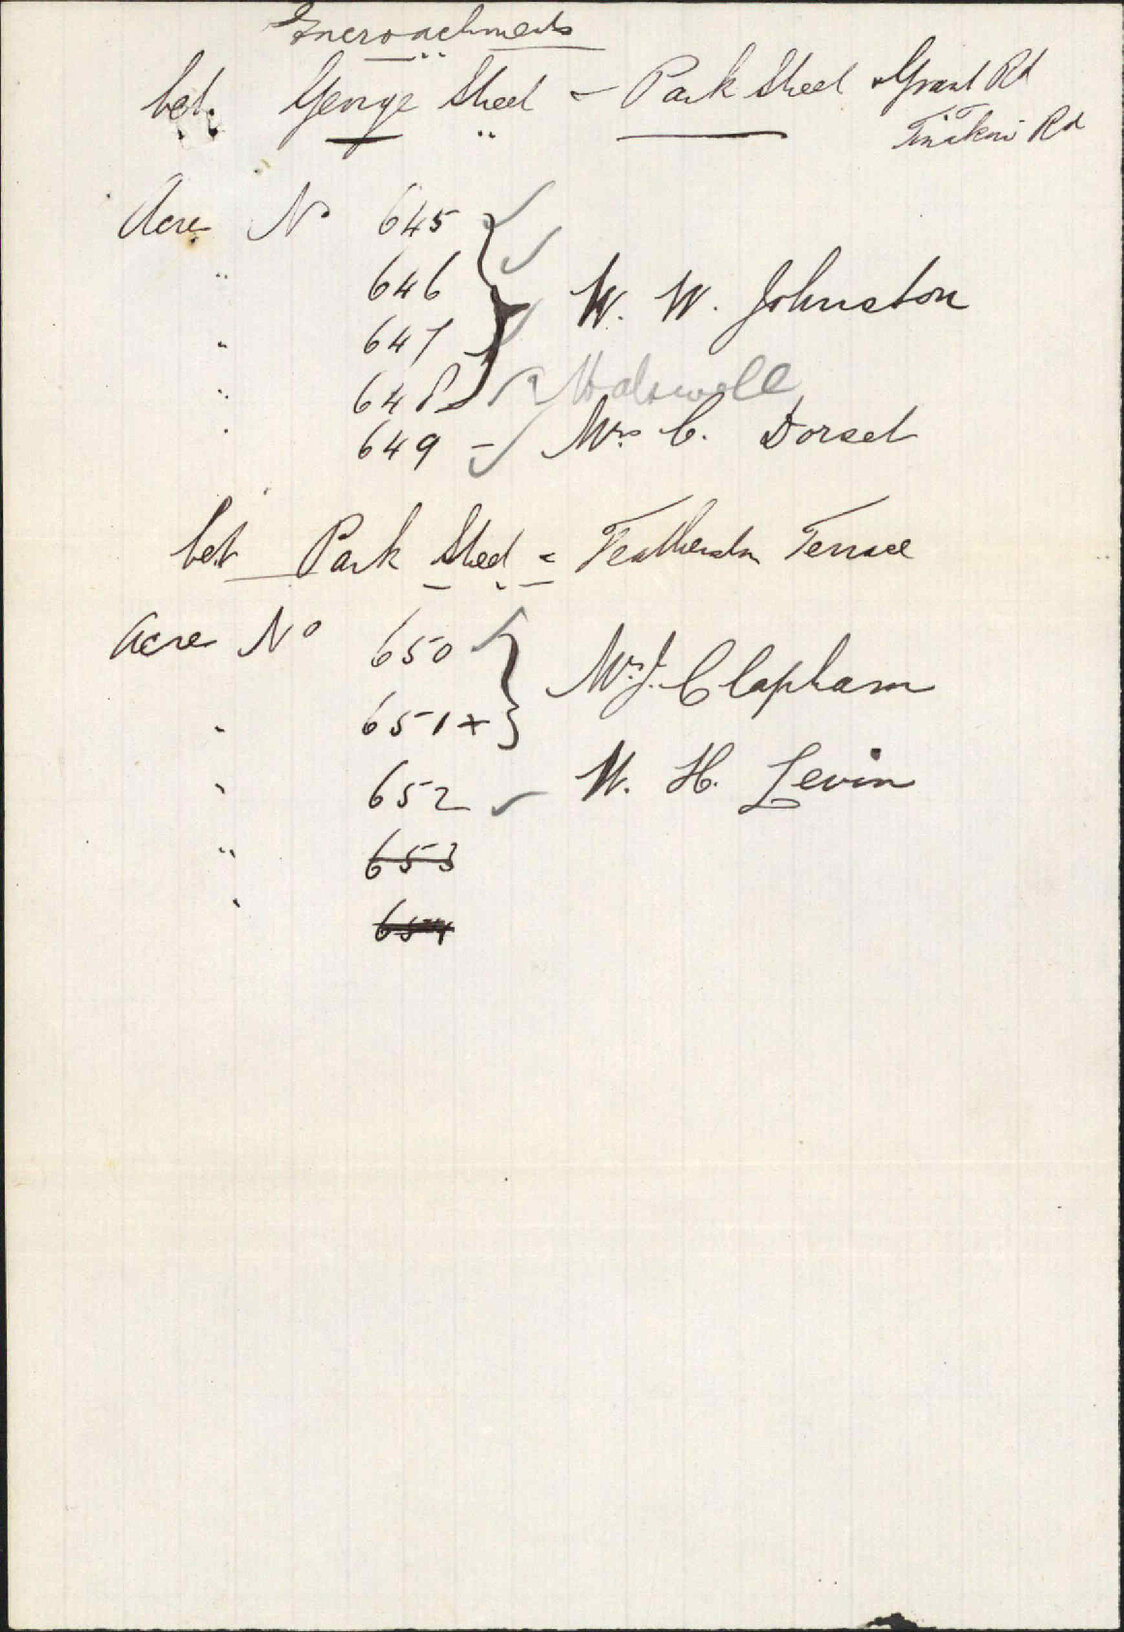 Encroachments
bet. George Street & Park Street & Grant Rd
Tinakori Rd
Acre No 645 ✓
" 646 ✓
W. W. Johnston
" 647 ✓
" 648 ✓ ? Halswell
" 649 – ✓ Mrs C. Dorset
bet Park Street & Featherston Terrace
Acre No 650 ✓
Mr J. Clapham
" 651 x
" 652 ✓ W. H. Levin
" 653
" 654